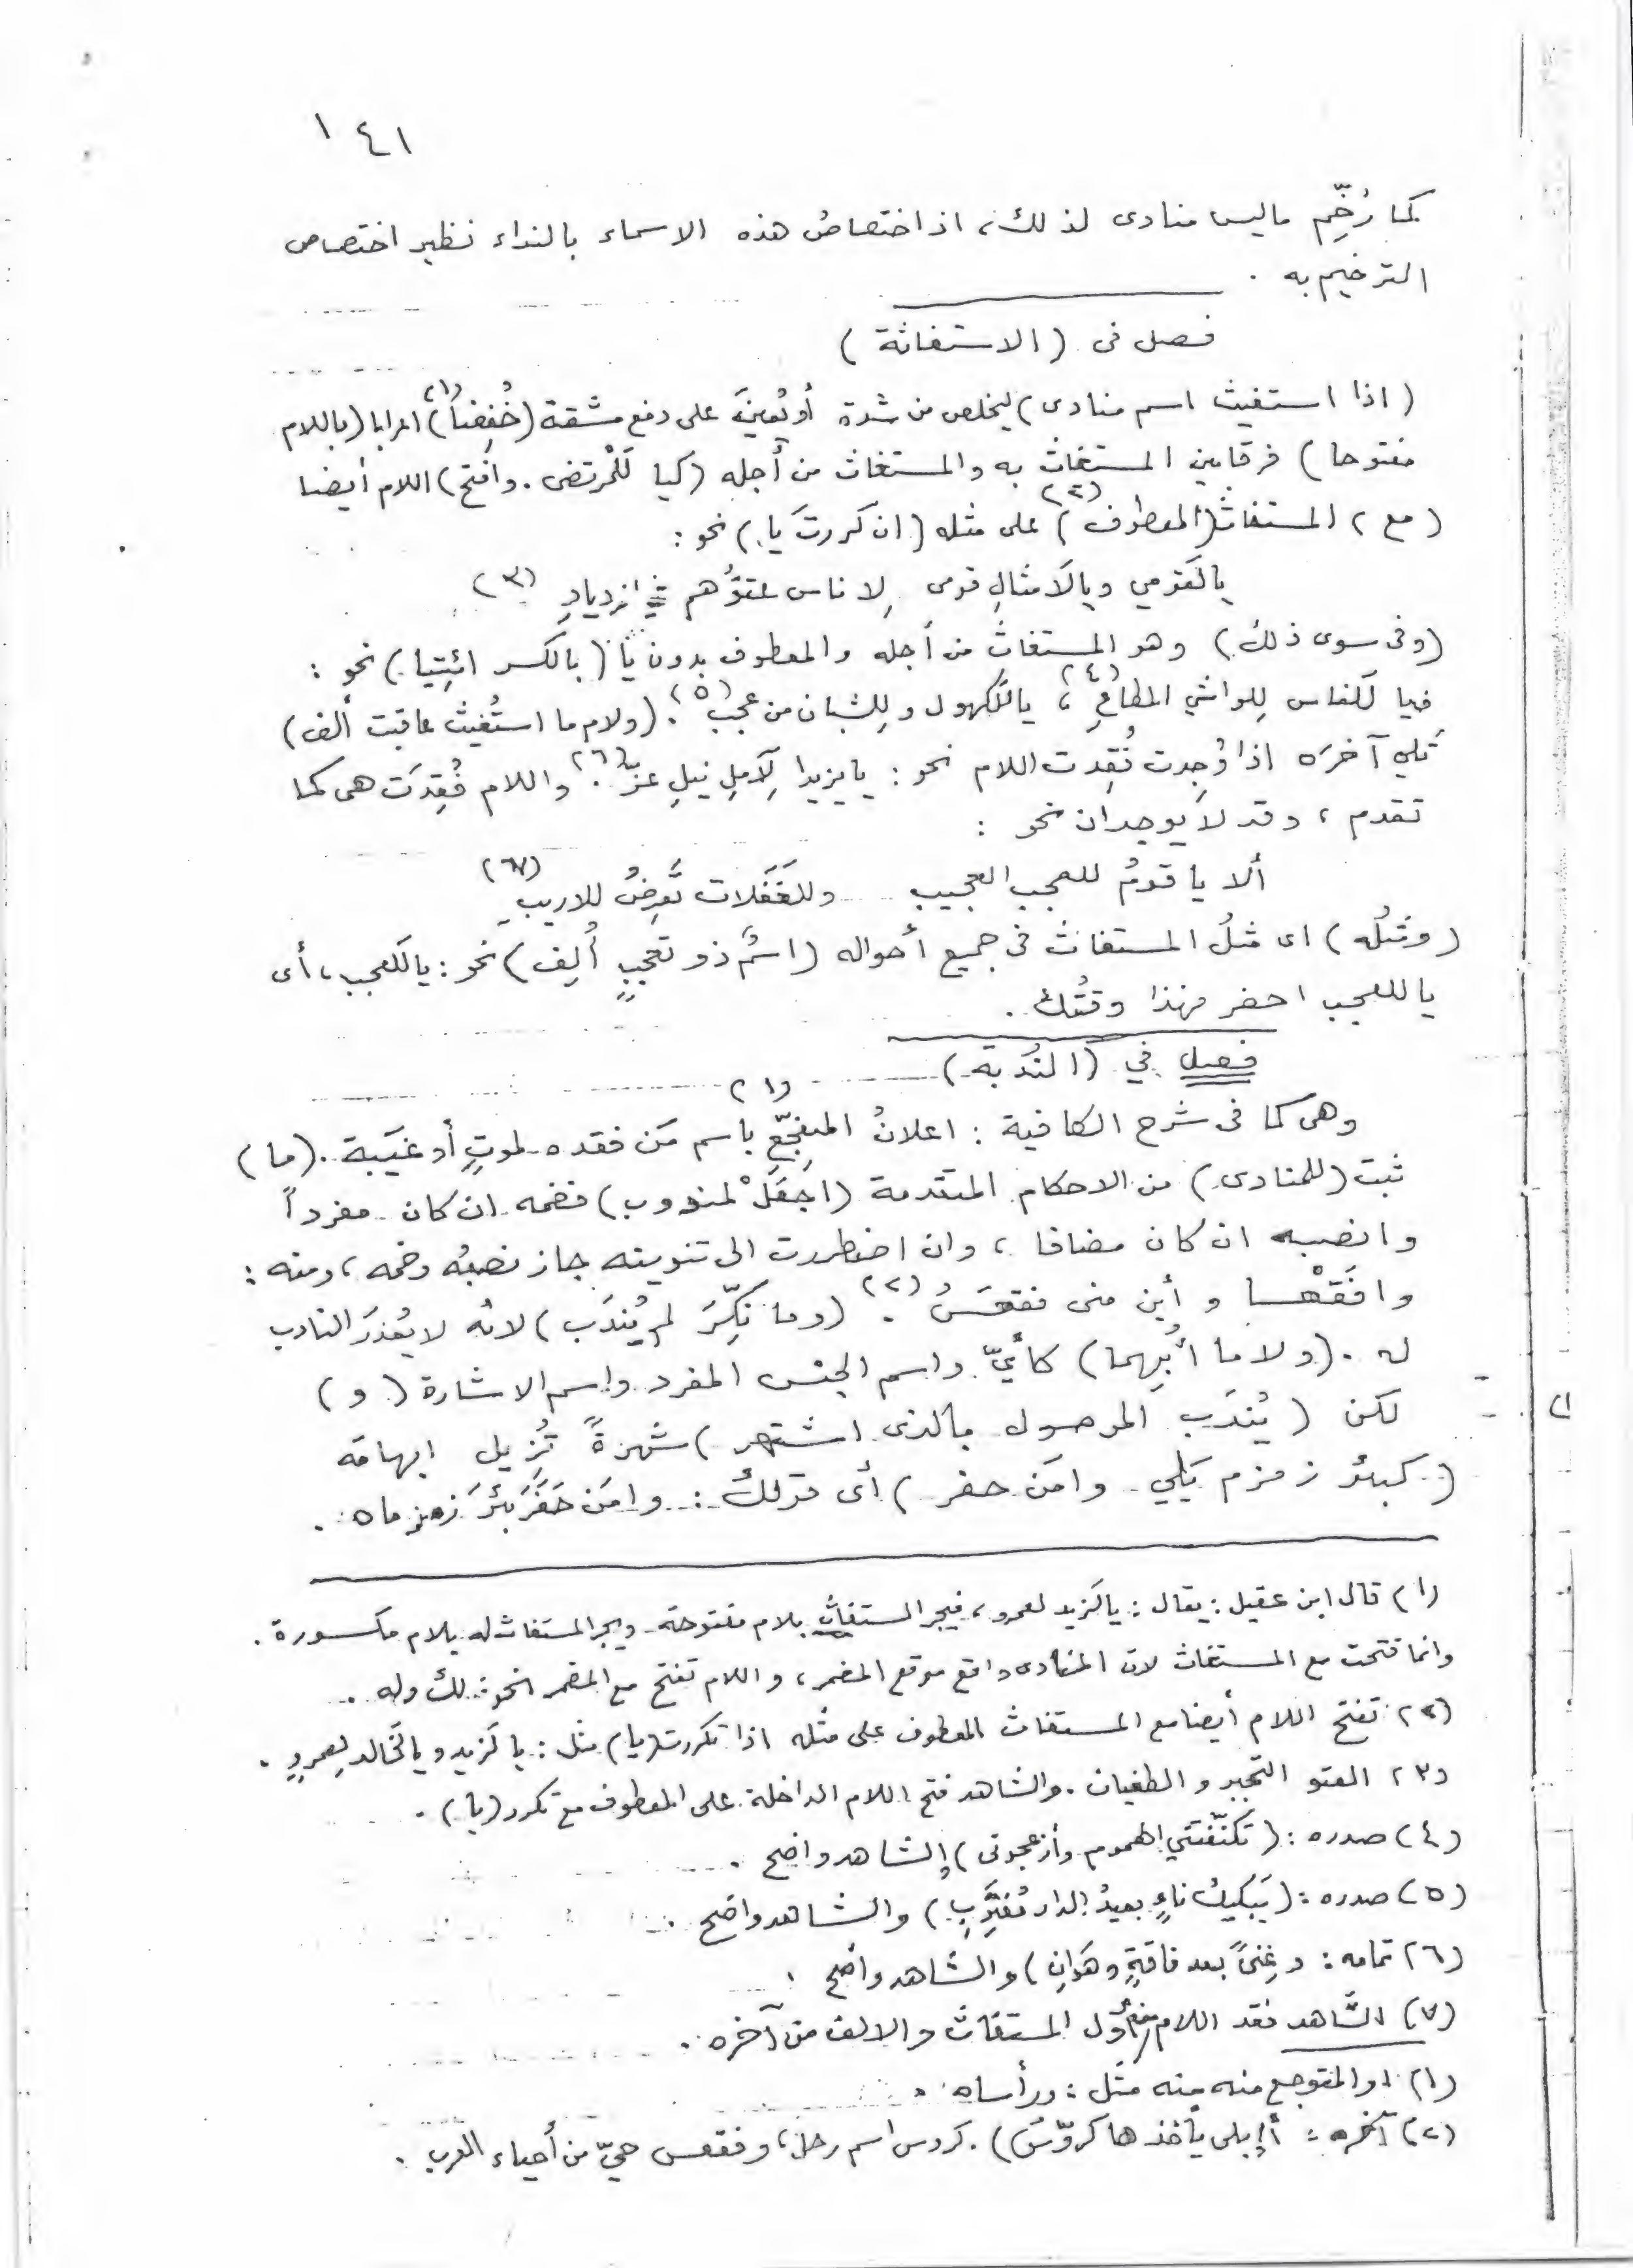 ١٤١
كما رُخِّم ماليس منادى لذلك، اذ اختصاصُ هذه الاسماء بالنداء نظير اختصاص
الترخيم به .
فصل فى (الاستغاثة)
(اذا استغيث اسم منادى) ليخلص من شدة أو يُعينَ على دفع مشقة (خُفِضَا) (١) اعرابا (باللام
مفتوحا) فرقا بين المستغاث به والمستغاث من أجله (كيا لَلْمرتضى . وافتح) اللام أيضا
(مع) المستغاث (المعطوف) (٢) على مثله (ان كررتَ يا) نحو :
يالَقومي ويالَامثالِ قومى لِاناس عتوُّهم في ازديادِ (٣)
(وفى سوى ذلك) وهو المستغاث من أجله والمعطوف بدون يا (بالكسر ائتِيا) نحو :
فيا لَلناس لِلواشي المطاعِ (٤) ، ياللكهول ولِلشبان من عجب (٥) . (ولام ما استُغيث عاقبت ألف)
تلي آخرَه اذا وُجدت فُقِدت اللام نحو : يا يزيدا لِآملٍ نيلِ عزّ (٦) . واللام فُقِدَت هى كما
تقدم ، وقد لا يوجدان نحو :
ألا يا قومُ للعجب العجيب وللغَفَلات تَعرِضُ للاريب (٧)
(ومثلُه) اى مثلُ المستغاث فى جميع أحواله (اسمٌ ذو تعجبٍ أُلِف) نحو : يا لَلعجب ، أى
يا للعجب احضر فهذا وقتُك .
فصل في (النُدبة)
وهى كما فى شرح الكافية : اعلانُ المتفجِّعِ (١) باسم مَن فقده لموتٍ أو غيبة . (ما)
ثبت (للمنادى) من الاحكام المتقدمة (اجعَلْ لمندوب) فضمه ان كان مفرداً
وانصبه ان كان مضافا ، وان اضطررت الى تنوينه جاز نصبُه وضمه ، ومنه :
وافَقْعسا وأين منى فقعسُ (٢) . (وما نُكِّرَ لم يُندَب) لانه لا يُعذرَ النادب
له . (ولا ما أُبهِما) كأيّ واسم الجنس المفرد واسم الاشارة (و)
لكن (يُندَب الموصول بالذى اشتهر) شهرةً تُزيل ابهامَه
(كبئر زمزم يَلي وامَن حفر) أى قولك : وامَن حَفَرَ بئرَ زمزماه .
(١) قال ابن عقيل : يقال : يا لَزيد لعمرو ، فيجر المستغاث بلام مفتوحة ويجر المستغاث له بلام مكسورة .
وانما فتحت مع المستغاث لان المنادى واقع موقع المضمر ، واللام تفتح مع المضمر نحو : لك وله .
(٢) تفتح اللام أيضا مع المستغاث المعطوف على مثله اذا تكررت (يا) مثل : يا لَزيد ويا لَخالد لِعمرو .
(٣) العتو التجبر والطغيان . والشاهد فتح اللام الداخلة على المعطوف مع تكرر (يا) .
(٤) صدره : (تكنّفني الهموم وأزعجونى) والشاهد واضح .
(٥) صدره : (يَبكيك ناءٍ بعيدُ الدار مُغتَرِبِ) والشاهد واضح .
(٦) تمامه : وغِنىً بعد فاقةٍ وهَوانِ) والشاهد واضح .
(٧) الشاهد فقد اللام من أول المستغاث والالف من آخره .
(١) او المتوجع منه مثل : ورأساه .
(٢) آخره : أإبلى يأخذها كروّسُ) . كروس اسم رجل ، وفقعس حيّ من أحياء العرب .